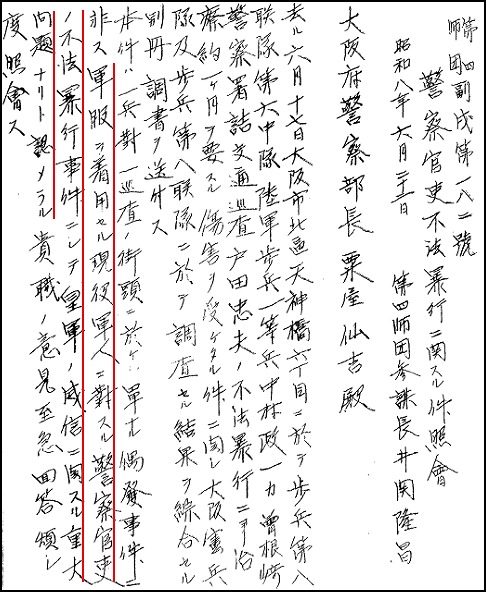 第四師団副成第一八二號
警察官吏不法暴行ニ関スル件照會
昭和八年六月二十一日
第四師団参謀長井関隆昌
大阪府警察部長粟屋仙吉殿
去ル六月十七日大阪市北區天神橋六丁目ニ於テ歩兵第八
联隊第六中隊陸軍歩兵一等兵中村政一カ曽根崎
警察署詰交通巡査戸田忠夫ノ不法暴行ニヨリ治
療約一ケ月ヲ要スル傷害ヲ受ケタル件ニ関シ大阪憲兵
隊及歩兵第八联隊ニ於テ調査セル結果ヲ綜合セル
別冊調書ヲ送付ス
本件ハ一兵對一巡査ノ街頭ニ於ケル單ナル偶發事件ニ
非ス軍服ヲ着用セル現役軍人ニ對スル警察官吏
ノ不法暴行事件ニシテ皇軍ノ威信ニ関スル重大
問題ナリト認メラル貴職ノ意見至急回答煩シ
度照會ス